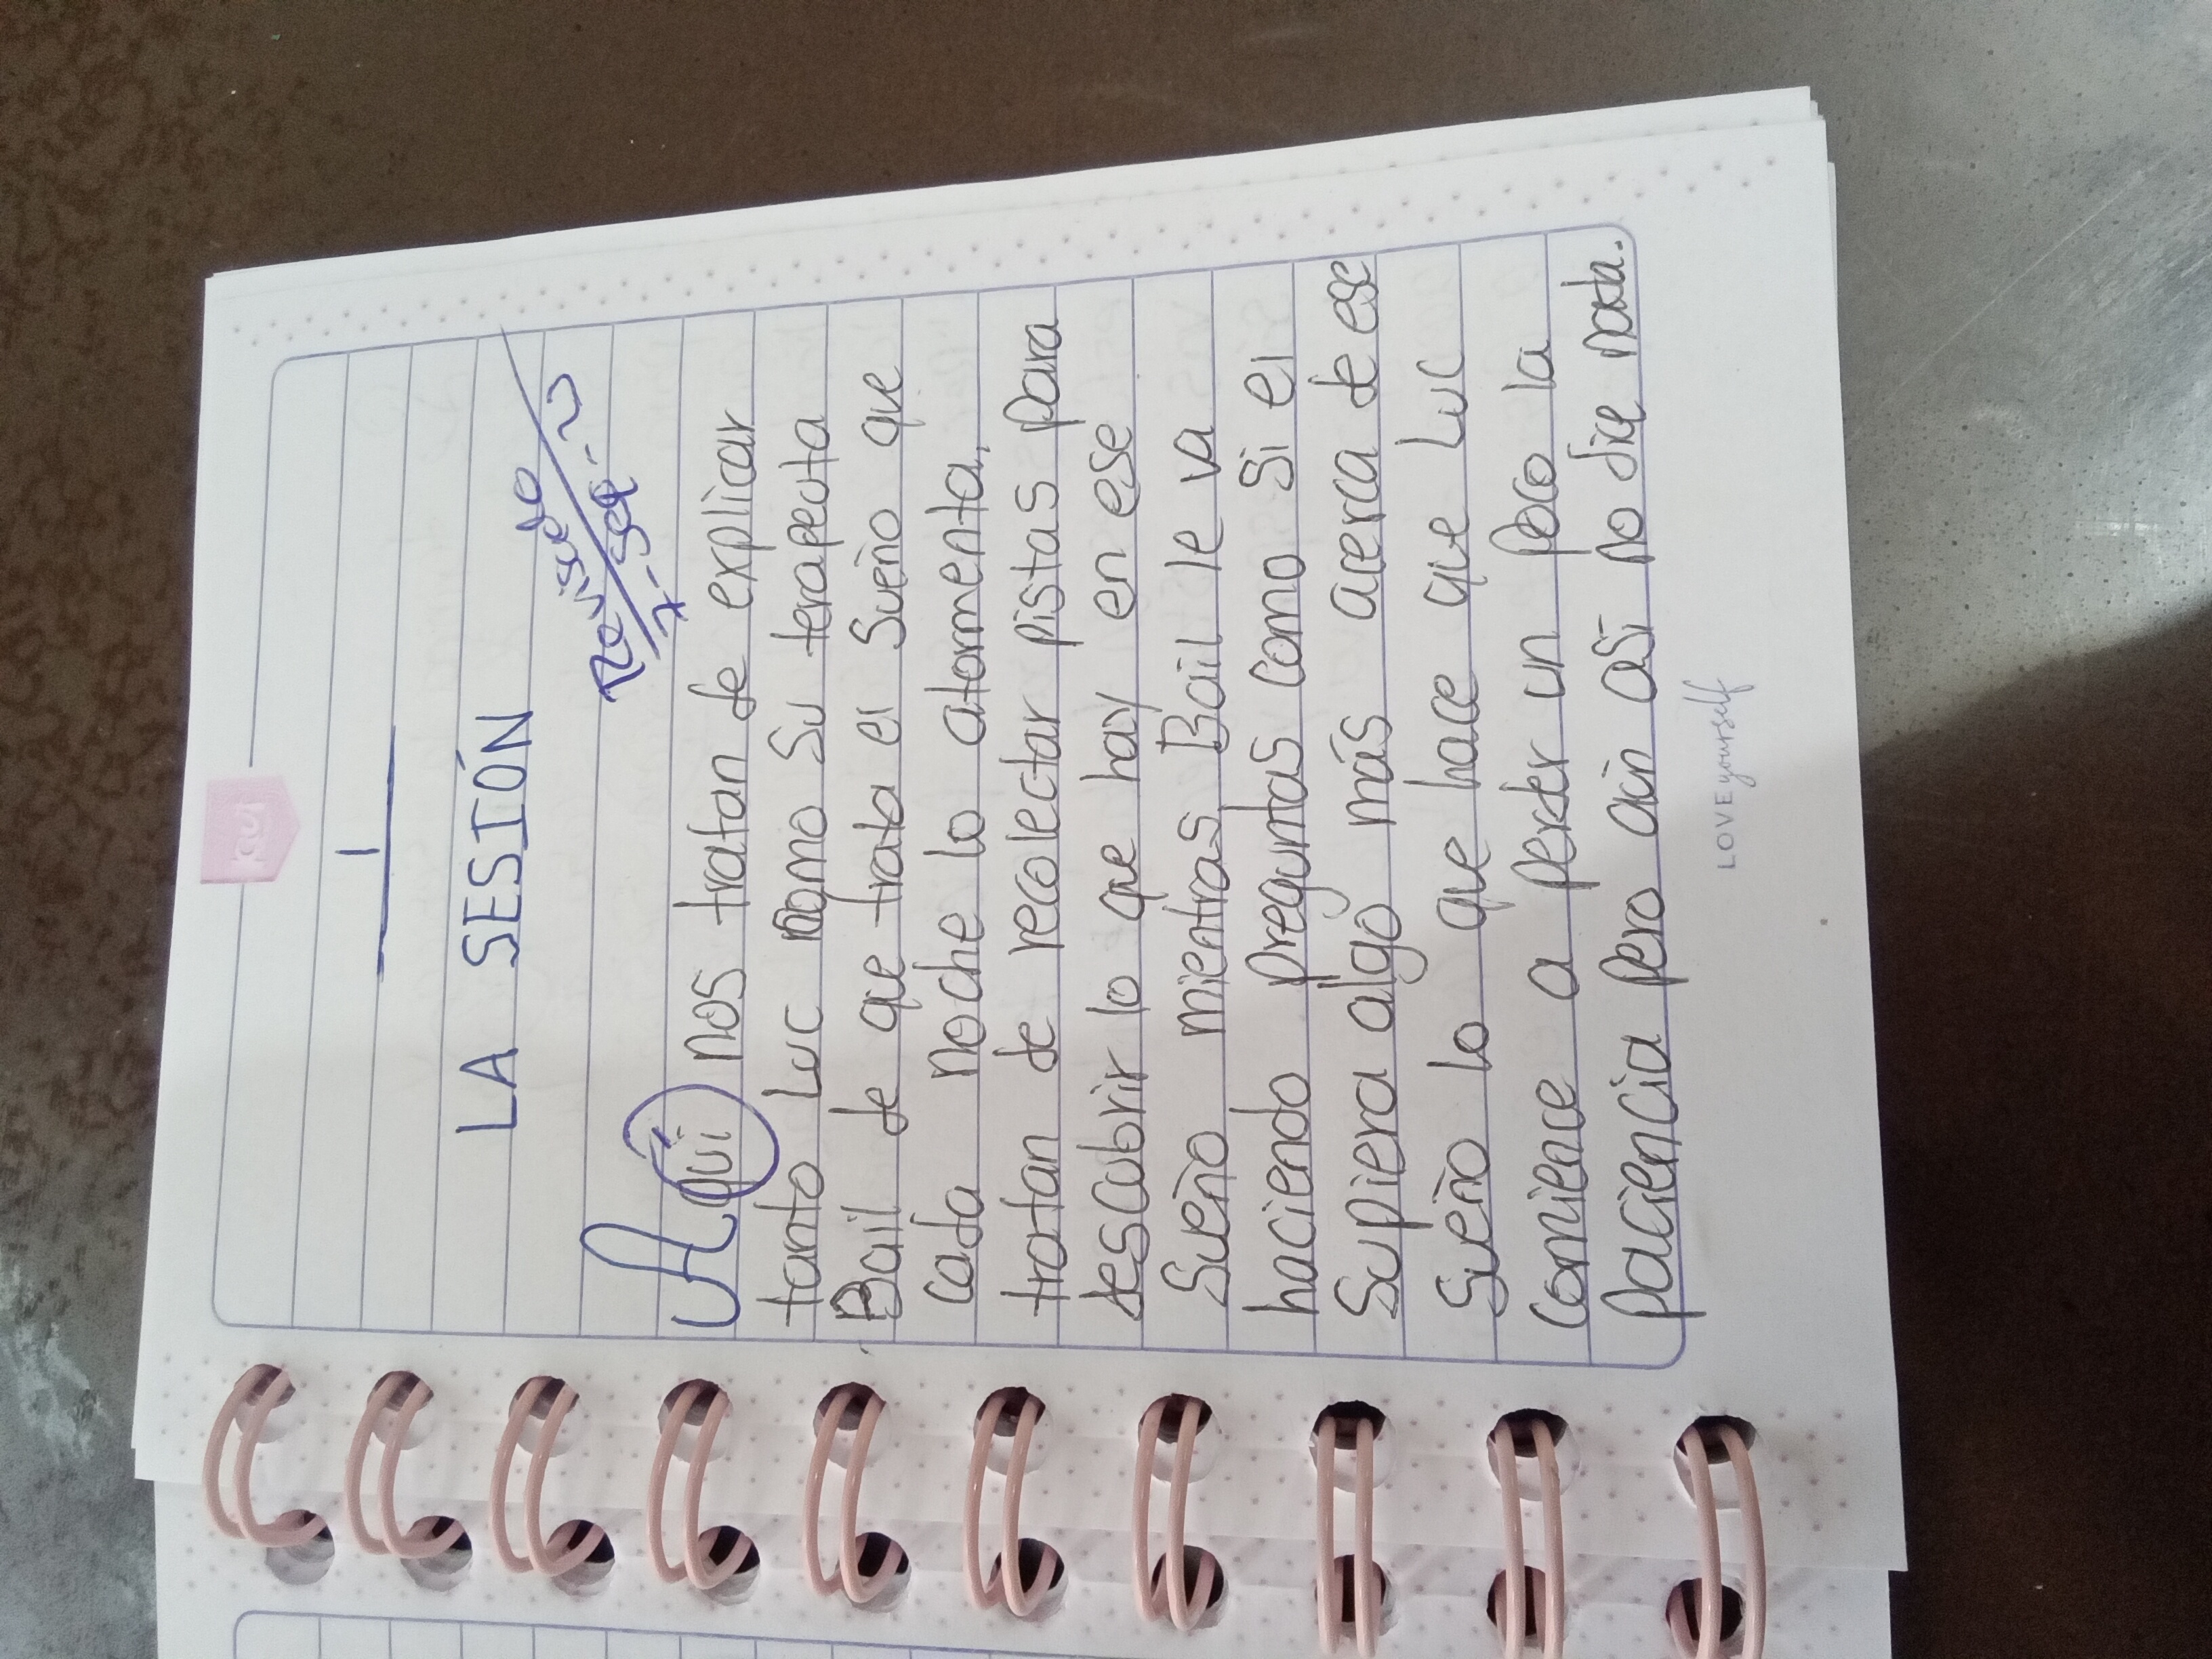 I
LA SESIÓN
Revisado
7-Sep-2
Aquí nos tratan de explicar
tanto Luc como su terapeuta
Bail de que trata el sueño que
cada noche lo atormenta,
tratan de recolectar pistas para
descubrir lo que hay en ese
sueño mientras Bail le va
haciendo preguntas como si el
supiera algo más acerca de ese
sueño lo que hace que Luc
comience a perder un poco la
paciencia pero aún así no dice nada.
LOVE yourself